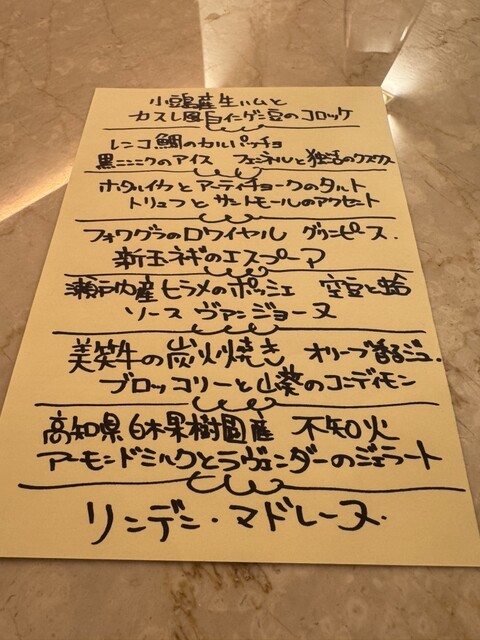 小豆島産生ハムと
カスレ風白インゲン豆のコロッケ
レンコ鯛のカルパッチョ
黒ニンニクのアイス フェンネルと独活のクスクス
ホタルイカとアーティチョークのタルト
トリュフとサントモールのアクセント
フォワグラのロワイヤル グリーンピース.
新玉ネギのエスプーア
瀬戸内産ヒラメのポッシェ 空豆と蛤
ソース ヴァンジョーヌ
美笑牛の炭火焼き オリーブ香るジュ.
ブロッコリーと山葵のコンディモン
高知県白木果樹園産 不知火
アーモンドミルクとラヴェンダーのジェラート
リンデン・マドレーヌ.